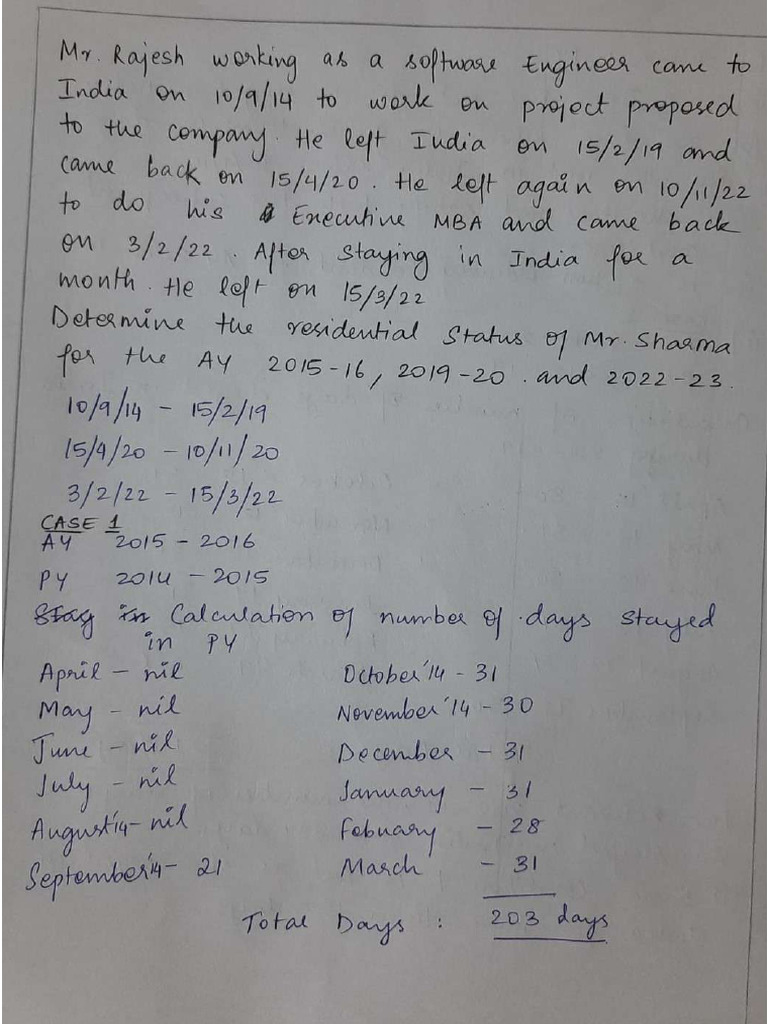 Mr. Rajesh working as a software Engineer came to
India on 10/9/14 to work on project proposed
to the company. He left India on 15/2/19 and
came back on 15/4/20. He left again on 10/11/22
to do his Executive MBA and came back
on 3/2/22. After staying in India for a
month. He left on 15/3/22
Determine the residential Status of Mr. Sharma
for the AY 2015-16, 2019-20. and 2022-23.
10/9/14 - 15/2/19
15/4/20 - 10/11/20
3/2/22 - 15/3/22
CASE 1
AY 2015 - 2016
PY 2014 - 2015
Stay in Calculation of number of days stayed
in PY
April - nil October'14 - 31
May - nil November'14 - 30
June - nil December - 31
July - nil January - 31
August'14 - nil Febuary - 28
September'14 - 21 March - 31
Total Days : 203 days